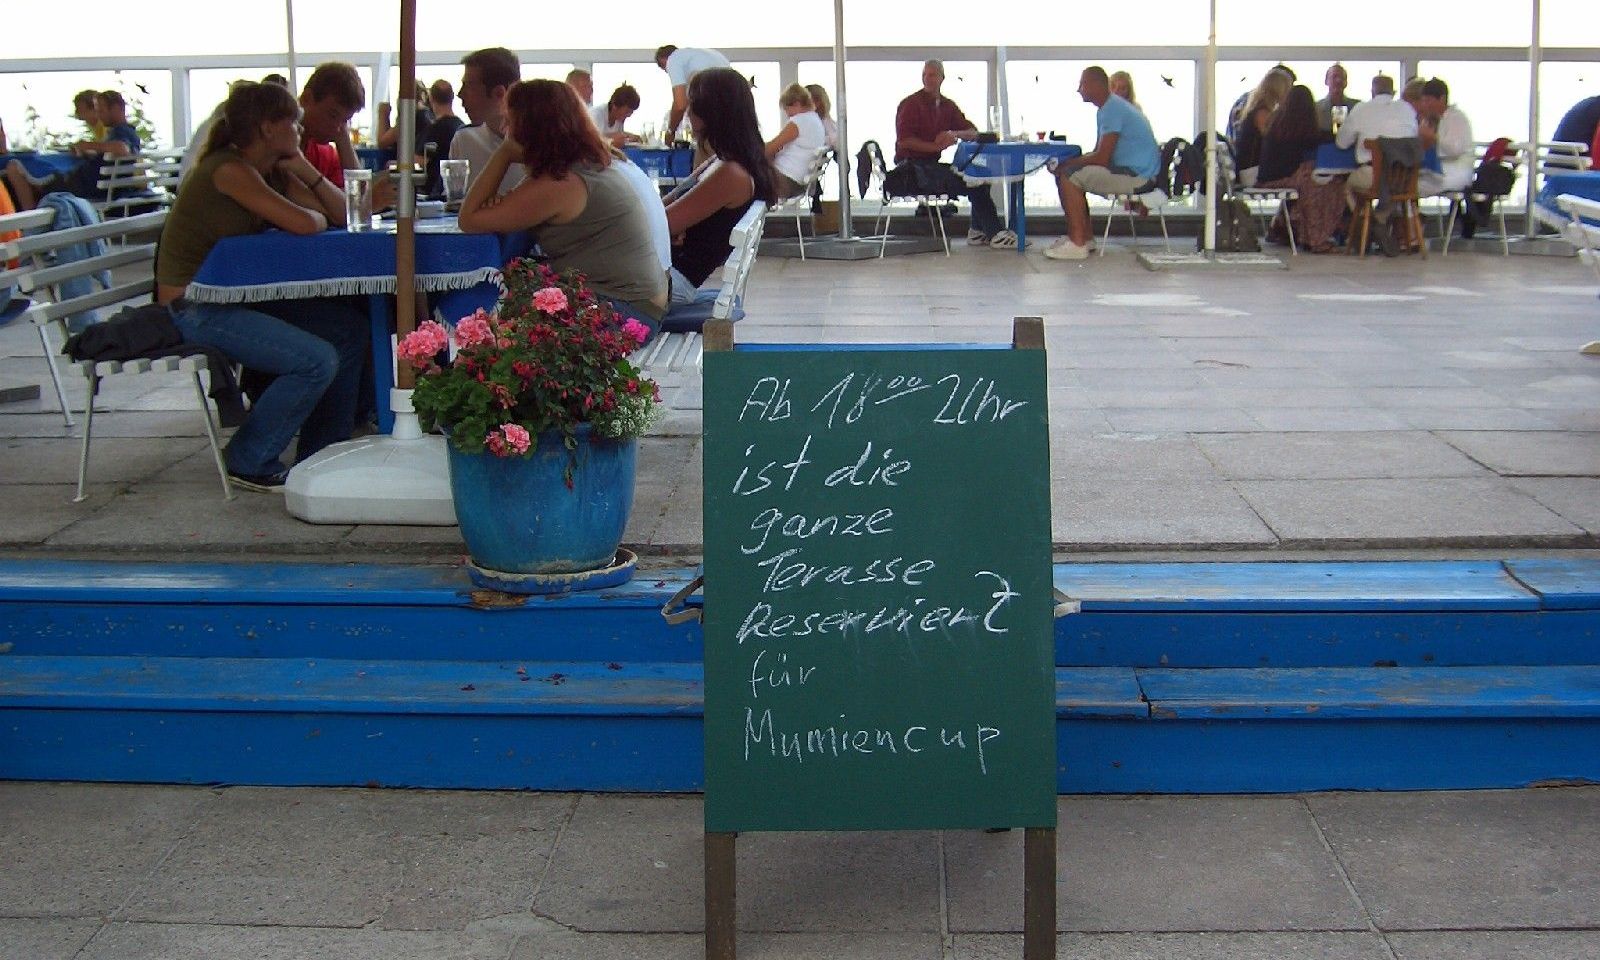 Ab 18⁰⁰ Uhr
ist die
ganze
Terasse
Reserviert
für
Mumiencup